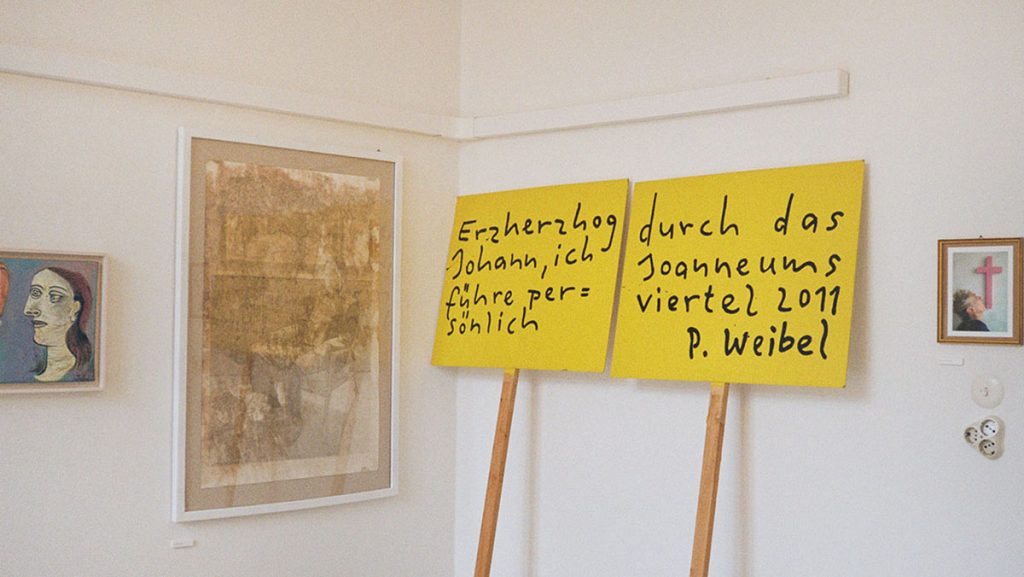 Erzherzhog
Johann, ich
führe per=
sönlich
durch das
Joanneums
viertel 2011
P. Weibel